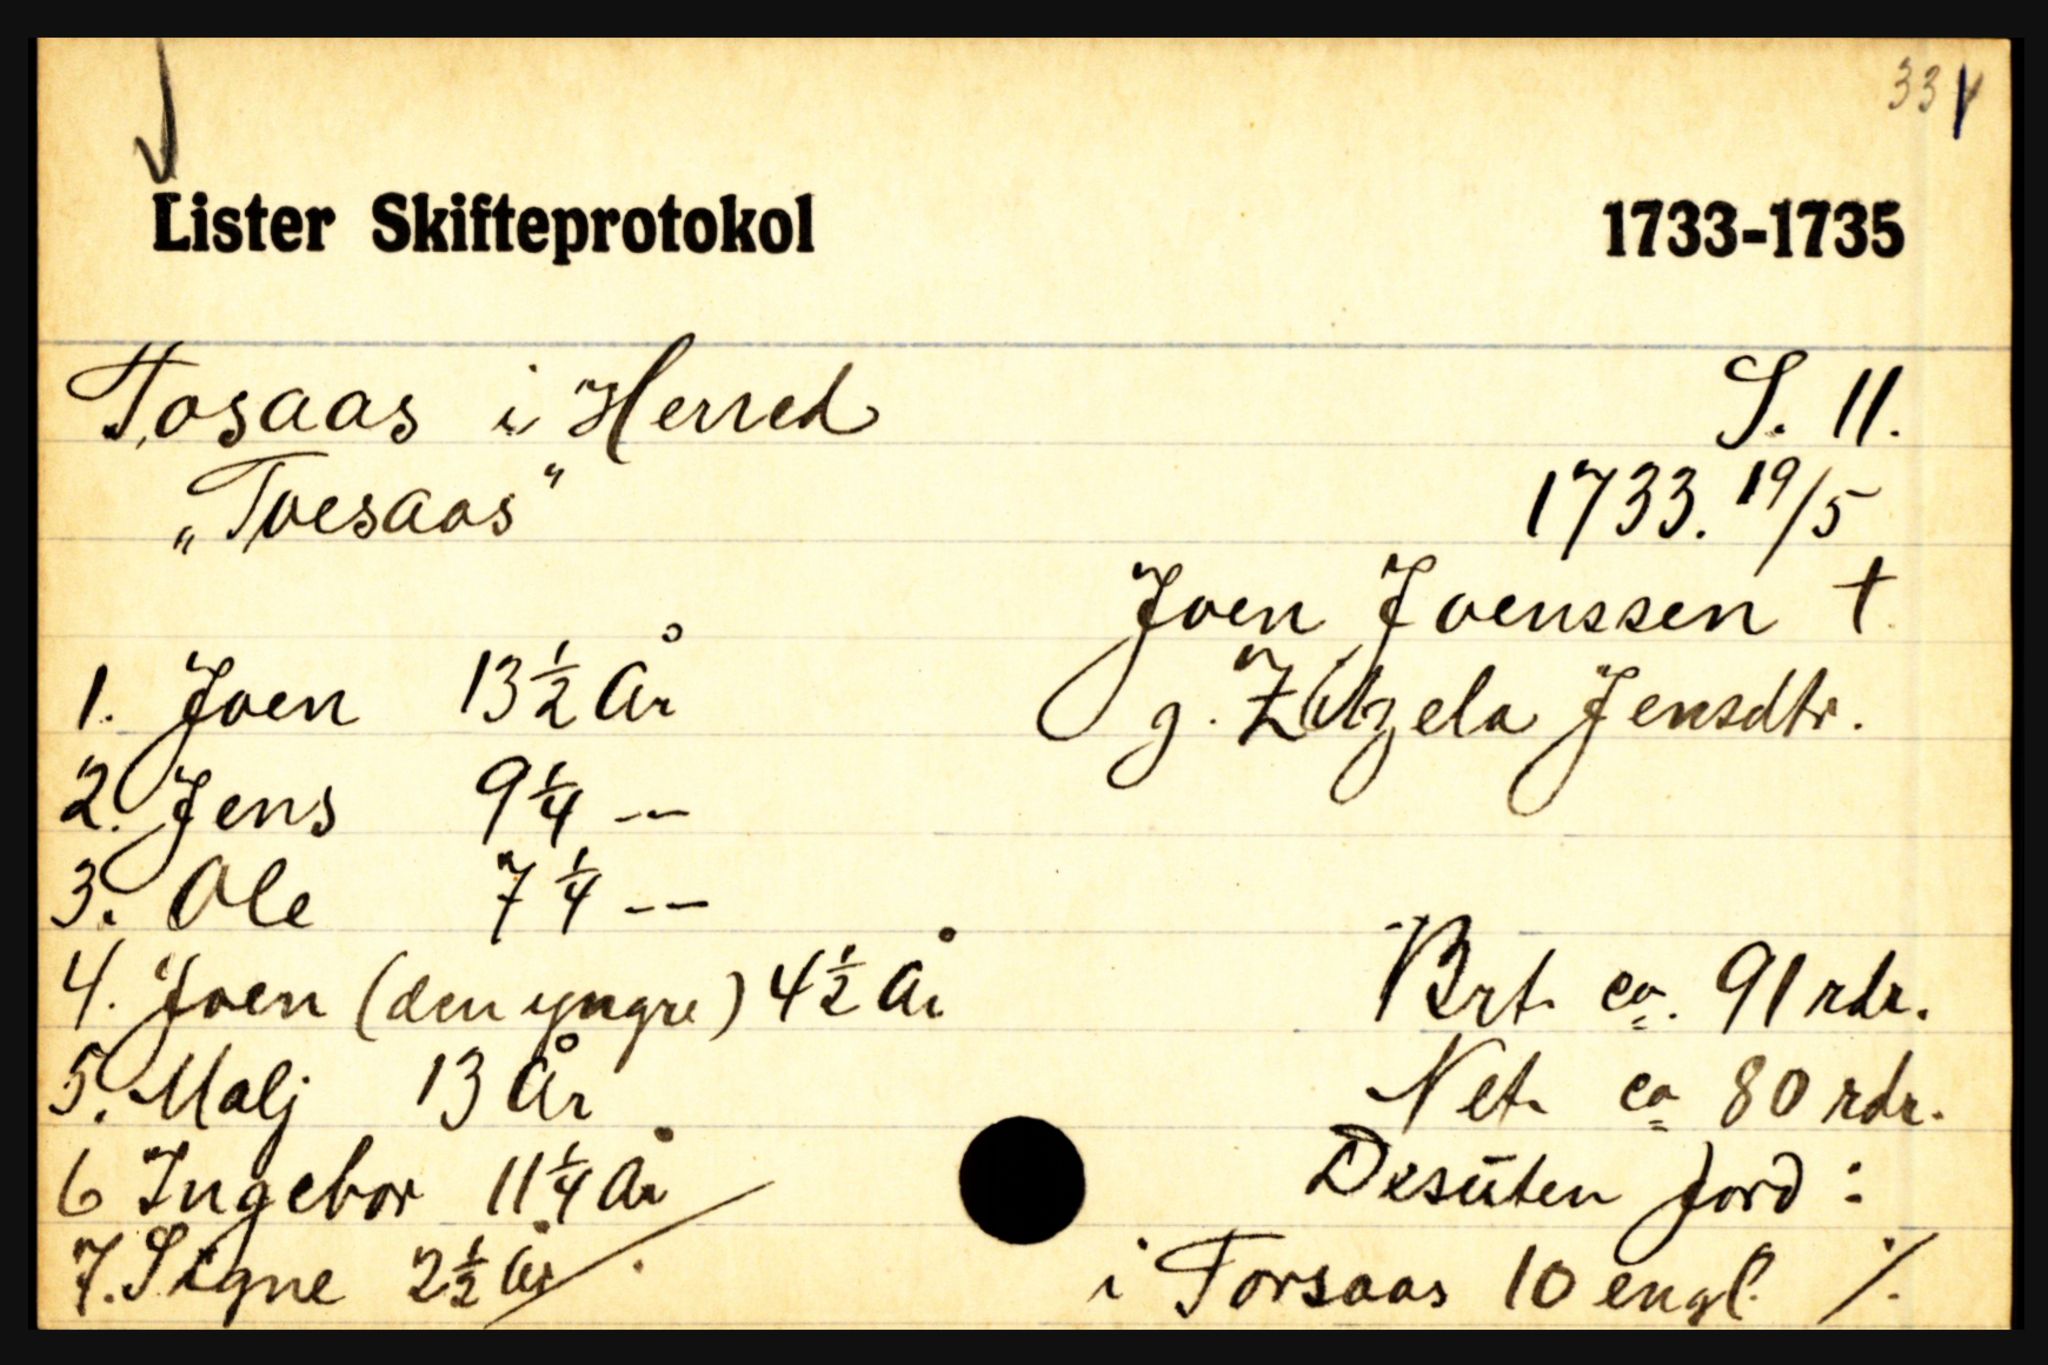 33
Lister Skifteprotokol 1733-1735
Tosaas i Herred S. 11.
„Toesaas" 1733. 19/5
Joen Joenssen †
1. Joen 13 1/2 År g. Zitzela Jensdtr.
2. Jens 9 1/4 --
3. Ole 7 1/4 --
4. Joen (den yngre) 4 1/2 År Brt. ca. 91 rdr.
5. Malj 13 År Net. ca 80 rdr.
6 Ingebor 11 1/4 År Desuten jord :
7. Signe 2 1/2 År i Torsaas 10 engl. ·/.